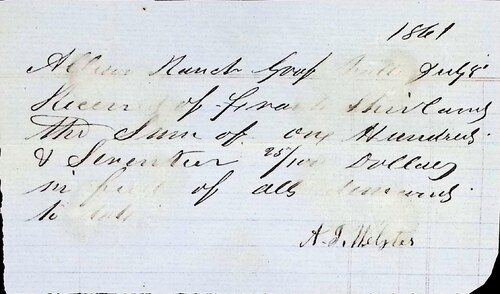 1861
Allison Ranch Grass Valley July 8
Received of Frank Shirland
the Sum of one Hundred
& Seventeen 25/100 Dollars
in full of all demands
to date
A. J. Webster